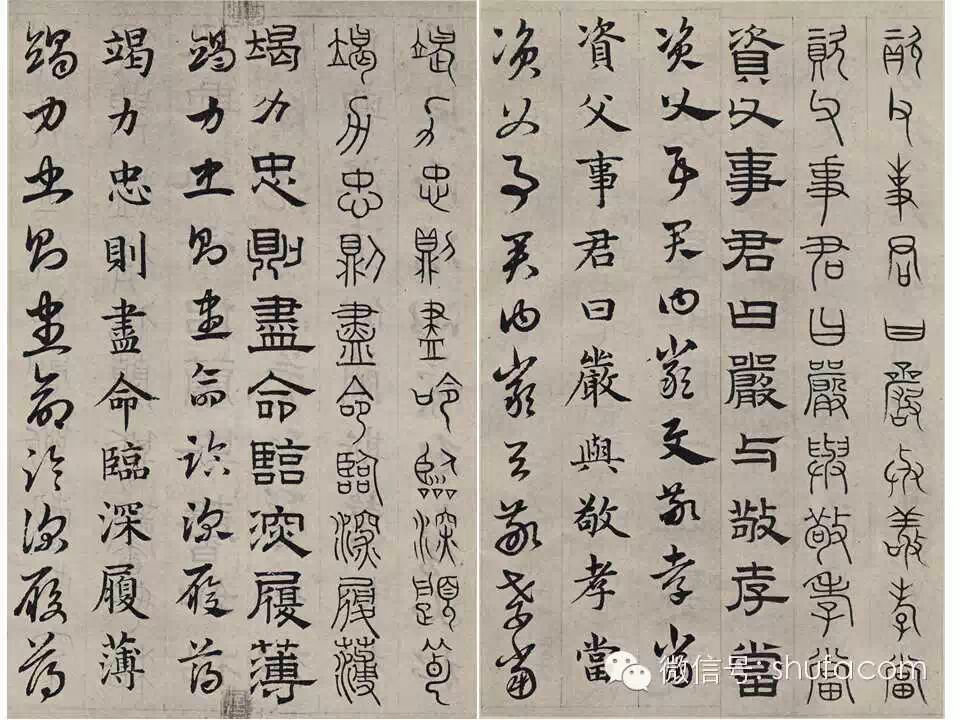 資父事君曰嚴與敬孝當
資父事君曰嚴與敬孝當
資父事君曰嚴与敬孝當
資父事君曰嚴與敬孝當
資父事君曰嚴與敬孝當
資父事君曰嚴與敬孝當
竭力忠則盡命臨深履薄
竭力忠則盡命臨深履薄
竭力忠則盡命臨深履薄
竭力忠則盡命臨深履薄
竭力忠則盡命臨深履薄
竭力忠則盡命臨深履薄
微信号: shufacom